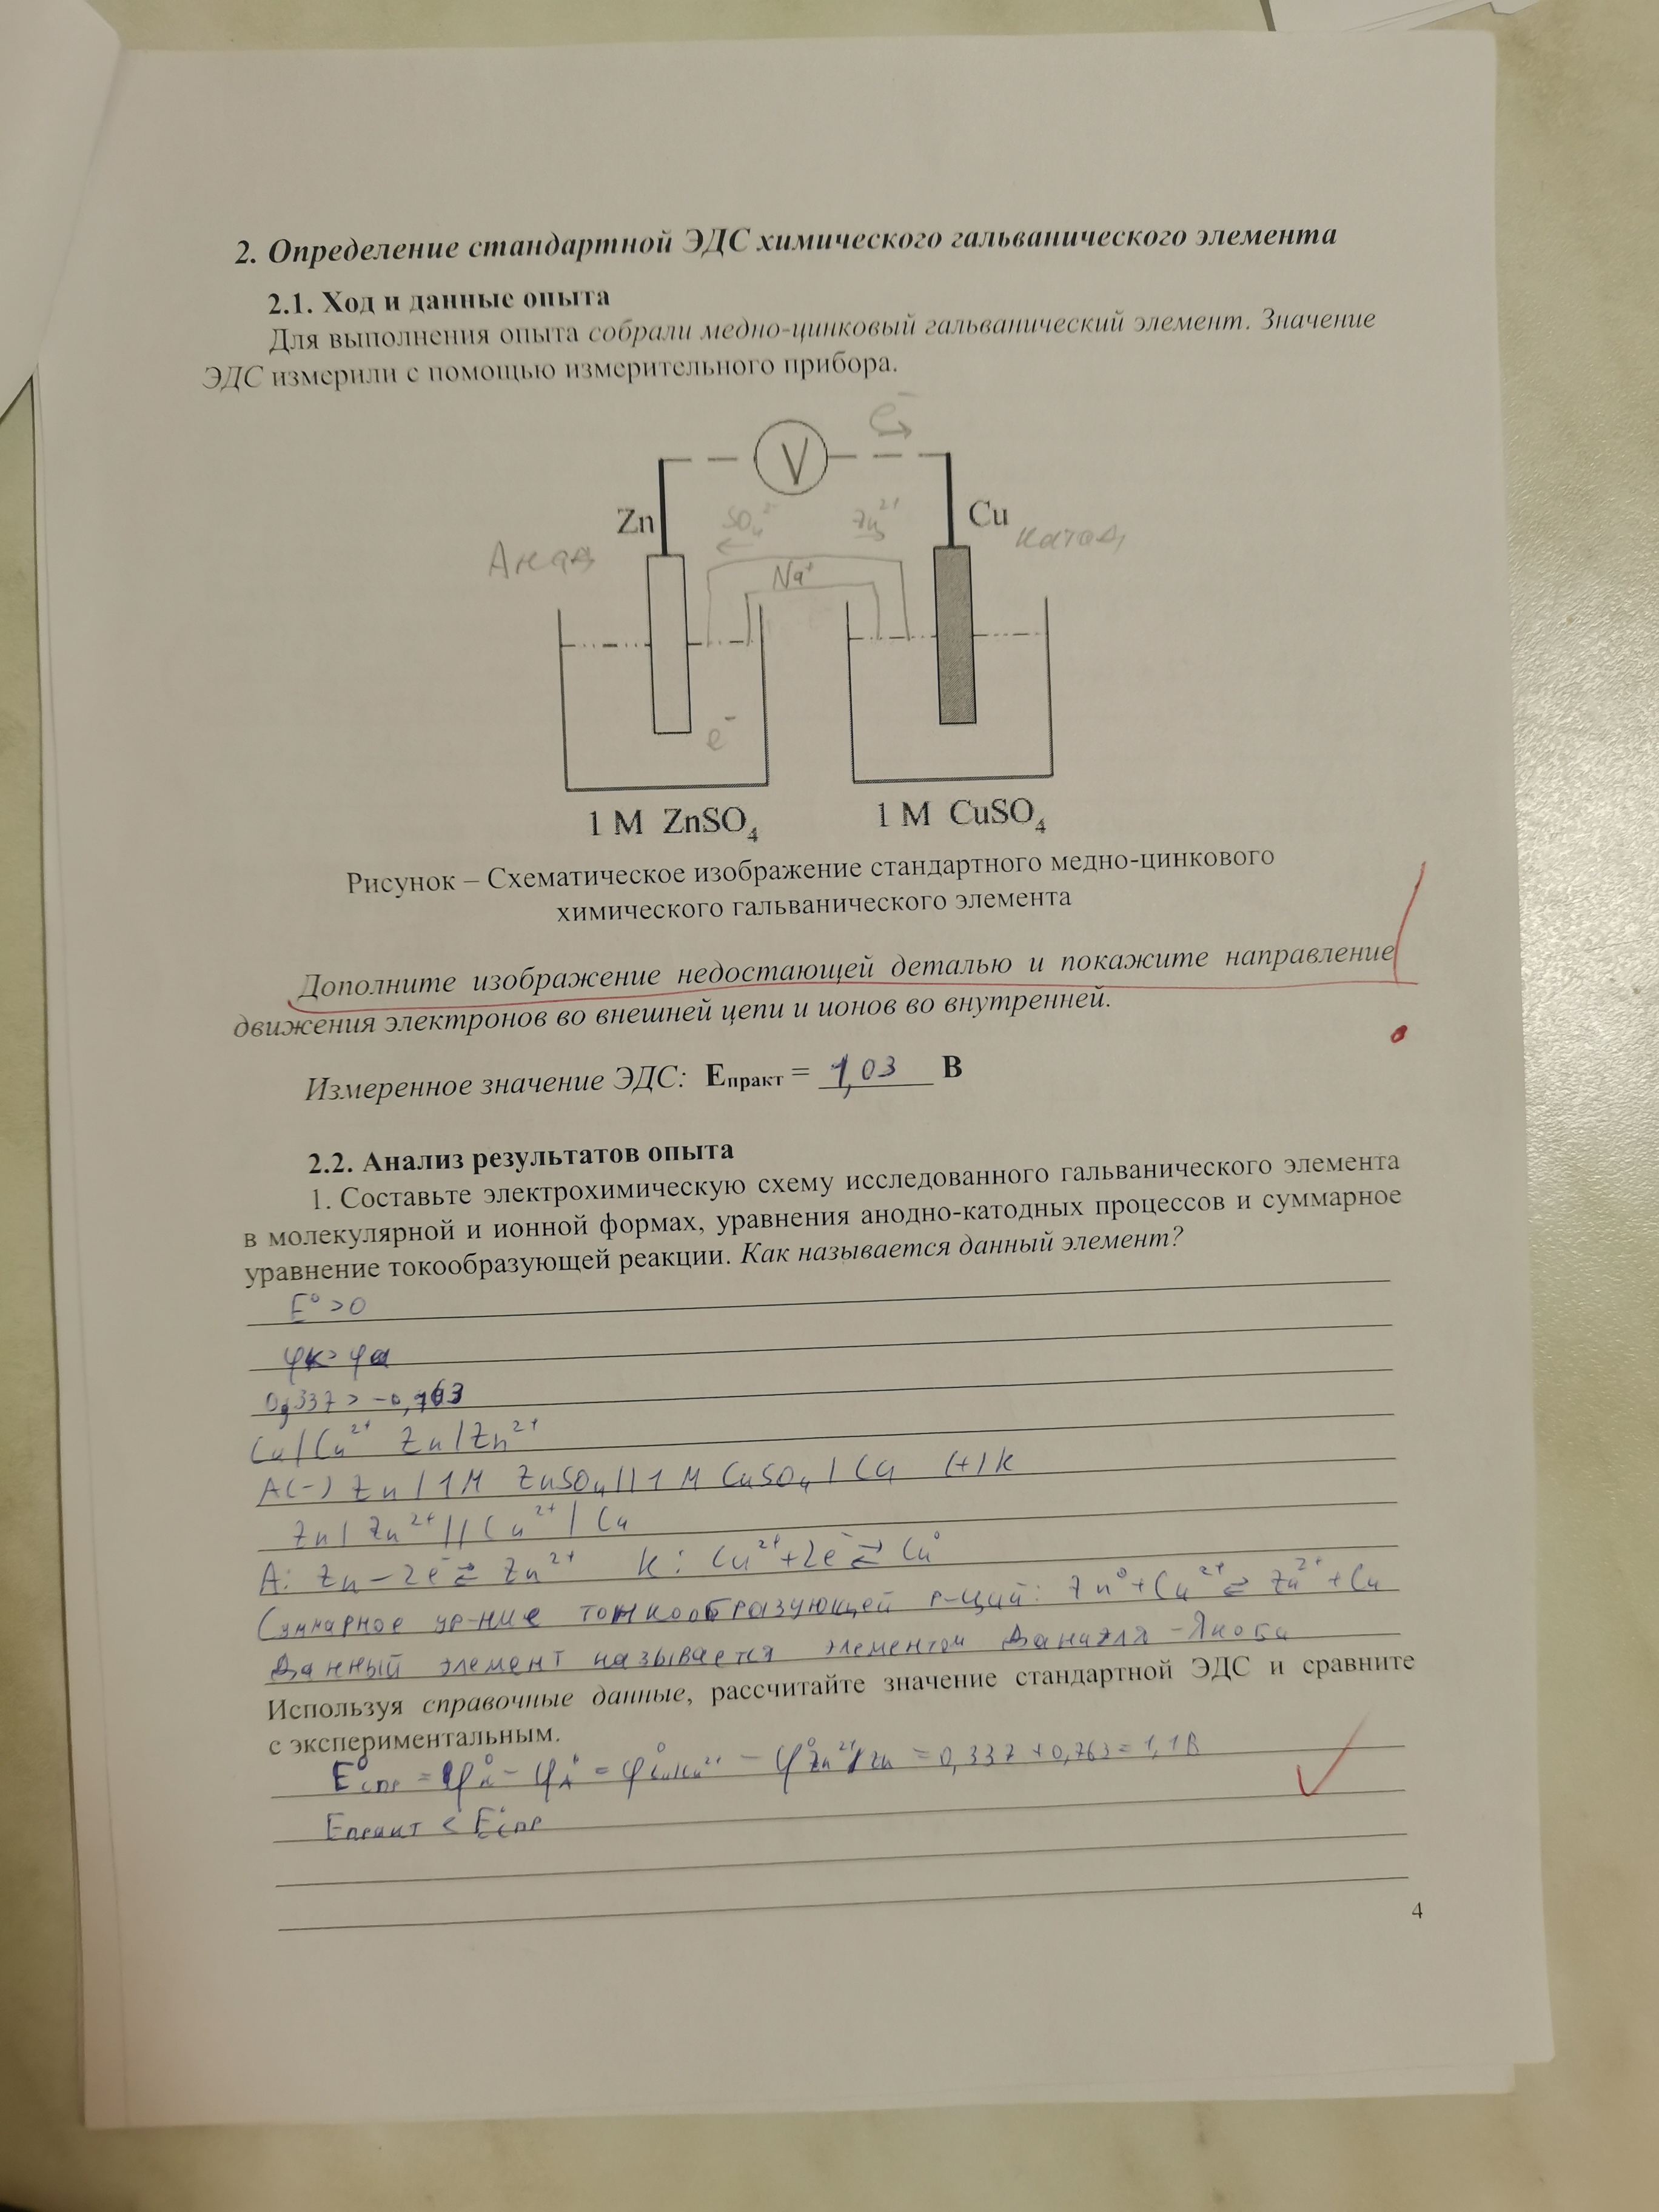 2. Определение стандартной ЭДС химического гальванического элемента
2.1. Ход и данные опыта
Для выполнения опыта собрали медно-цинковый гальванический элемент. Значение
ЭДС измерили с помощью измерительного прибора.
e⁻
V
Zn
SO₄²⁻
Zn²⁺
Cu
Анод
катод
Na⁺
e⁻
1 М ZnSO₄
1 М CuSO₄
Рисунок – Схематическое изображение стандартного медно-цинкового
химического гальванического элемента
Дополните изображение недостающей деталью и покажите направление
движения электронов во внешней цепи и ионов во внутренней.
Измеренное значение ЭДС: Eпракт = 1,03 В
2.2. Анализ результатов опыта
1. Составьте электрохимическую схему исследованного гальванического элемента
в молекулярной и ионной формах, уравнения анодно-катодных процессов и суммарное
уравнение токообразующей реакции. Как называется данный элемент?
E⁰ > 0
φк > φа
0,337 > -0,763
Cu | Cu²⁺ Zn | Zn²⁺
A(-) Zn | 1М ZnSO₄ || 1 М CuSO₄ | Cu (+) К
Zn | Zn²⁺ || Cu²⁺ | Cu
А: Zn - 2e⁻ ⇄ Zn²⁺ К: Cu²⁺ + 2e⁻ ⇄ Cu⁰
Суммарное ур-ние токообразующей р-ций: Zn⁰ + Cu²⁺ ⇄ Zn²⁺ + Cu
Данный элемент называется элементом Даниэля - Якоби
Используя справочные данные, рассчитайте значение стандартной ЭДС и сравните
с экспериментальным.
E⁰спр = φ⁰к - φ⁰А = φ⁰Cu/Cu²⁺ - φ⁰Zn²⁺/Zn = 0,337 + 0,763 = 1,1В
Eпракт < E⁰спр
4